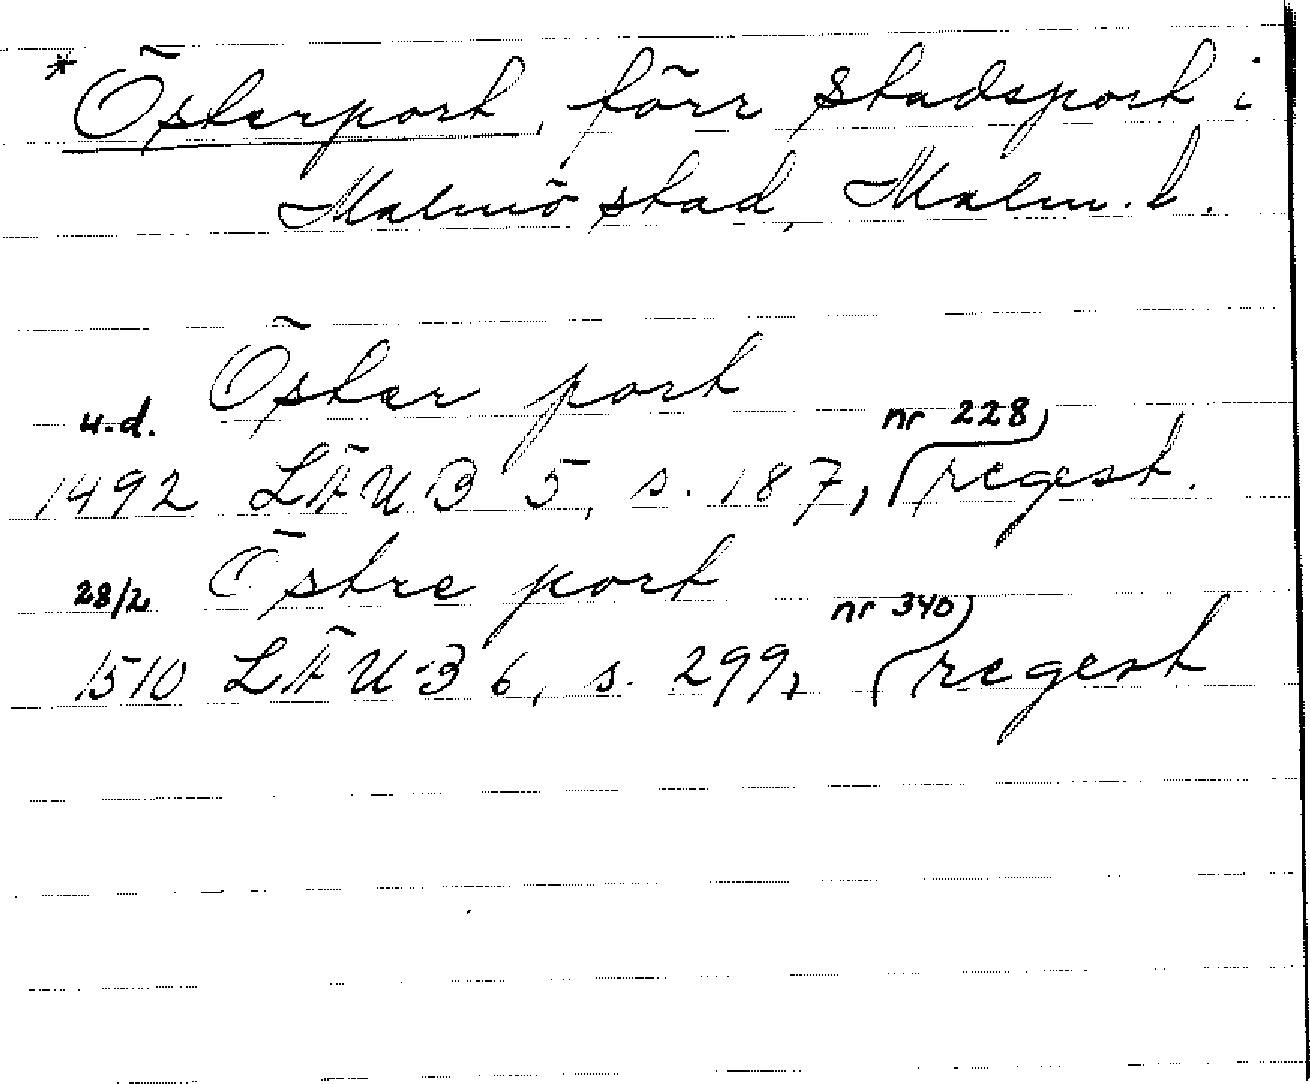 * Österport, förr stadsport i
Malmö stad, Malm. l.
Öster port
u.d. nr 228
1492 LÄUB 5, s. 187, regest.
Östre port
28/2 nr 340
1510 LÄUB 6, s. 299, regest